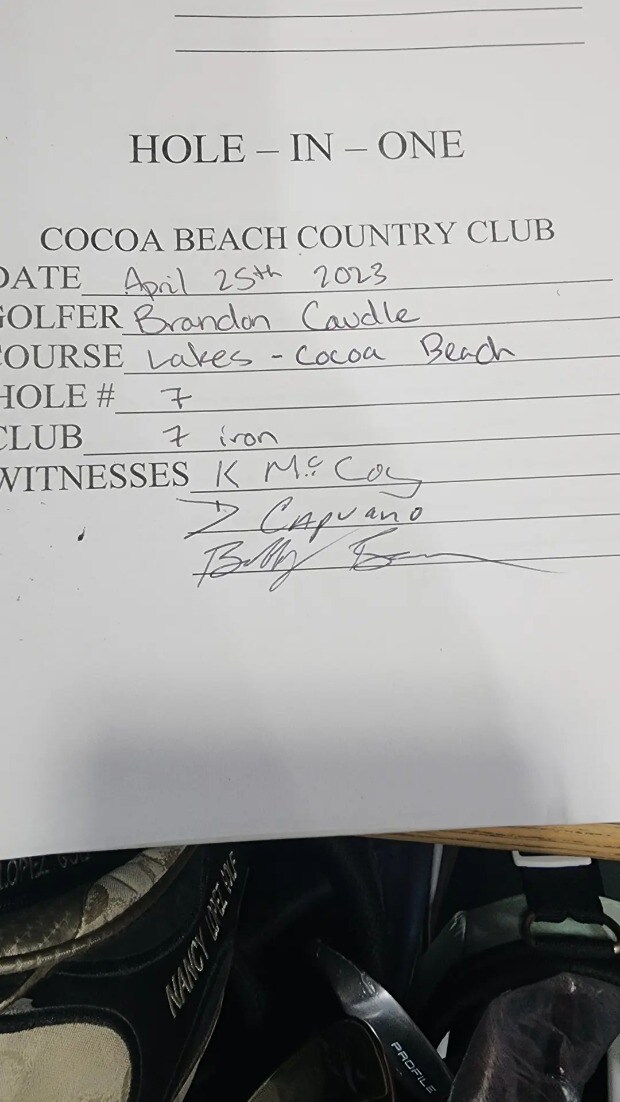 HOLE – IN – ONE
COCOA BEACH COUNTRY CLUB
DATE April 25th 2023
GOLFER Brandon Caudle
COURSE Lakes - Cocoa Beach
HOLE # 7
CLUB 7 iron
WITNESSES K McCoy
Z Capuano
Bobby
LOPEZ
NANCY LOPEZ GOLF
PROFILE